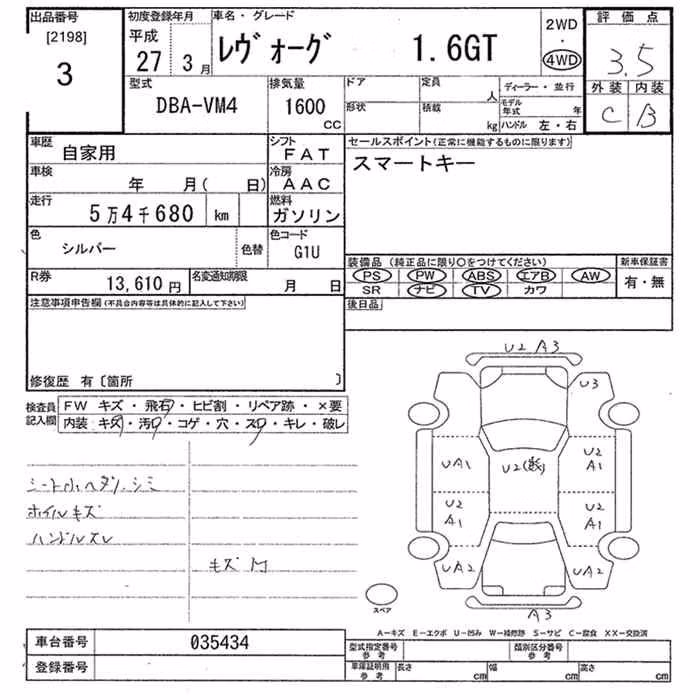 出品番号
[2198]
3
初度登録年月
平成
27 3月
車名・グレード
レヴォーグ 1.6GT
2WD
・
4WD
評価点
3.5
外装 内装
C B
型式
DBA-VM4
排気量
1600
CC
ドア
形状
定員
人
積載
kg
ディーラー・並行
モデル年式 年
ハンドル 左・右
車歴
自家用
シフト
FAT
セールスポイント(正常に機能するものに限ります)
スマートキー
車検
年 月( 日)
冷房
AAC
走行
5万4千680 km
燃料
ガソリン
色
シルバー
色替
色コード
G1U
装備品(純正品に限り○をつけてください)
PS PW ABS エアB AW
SR ナビ TV カワ
新車保証書
有・無
R券
13,610円
名変通知期限
月 日
後日品
注意事項申告欄(不具合内容等は具体的に記入して下さい)
修復歴 有〔箇所 〕
検査員記入欄
FW キズ・飛石・ヒビ割・リペア跡・×要
内装 キズ・汚れ・コゲ・穴・スレ・キレ・破レ
ホイルキズ
ハンドルスレ
U2 A3
U3
UA1
U2
U2
A1
U2
A1
U2
A1
UA2
UA2
A3
スペア
A－キズ E－エクボ U－凹み W－補修跡 S－サビ C－腐食 XX－交換済
車台番号
035434
登録番号
型式指定番号
参考
類別区分番号
参考
車庫証明用
参考
長さ cm
幅 cm
高さ cm